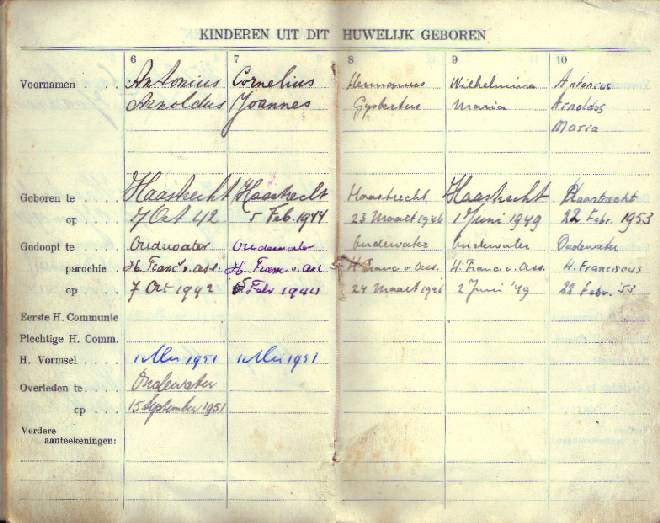 KINDEREN UIT DIT HUWELIJK GEBOREN
6 7 8 9 10
Voornamen Antonius Cornelius Hermannus Wilhelmina Antonius
Arnoldus Joannes Gysbertus Maria Arnoldus
Maria
Geboren te Haastrecht Haastrecht Haastrecht Haastrecht Haastrecht
op 7 Oct 42 5 Feb. 1944 23 Maart 1946 1 Juni 1949 22 Febr. 1953
Gedoopt te Oudewater Oudewater Oudewater Oudewater Oudewater
parochie H. Franc. v. Ass. H. Franc. v. Ass H. Franc. v. Ass. H. Franc. v. Ass. H. Franciscus
op 7 Oct 1942 Febr 1944 24 Maart 1946 2 Juni '49 22 Febr. 53
Eerste H. Communie
Plechtige H. Comm.
H. Vormsel 1951 1951
Overleden te Oudewater
op 15 September 1951
Verdere
aanteekeningen: